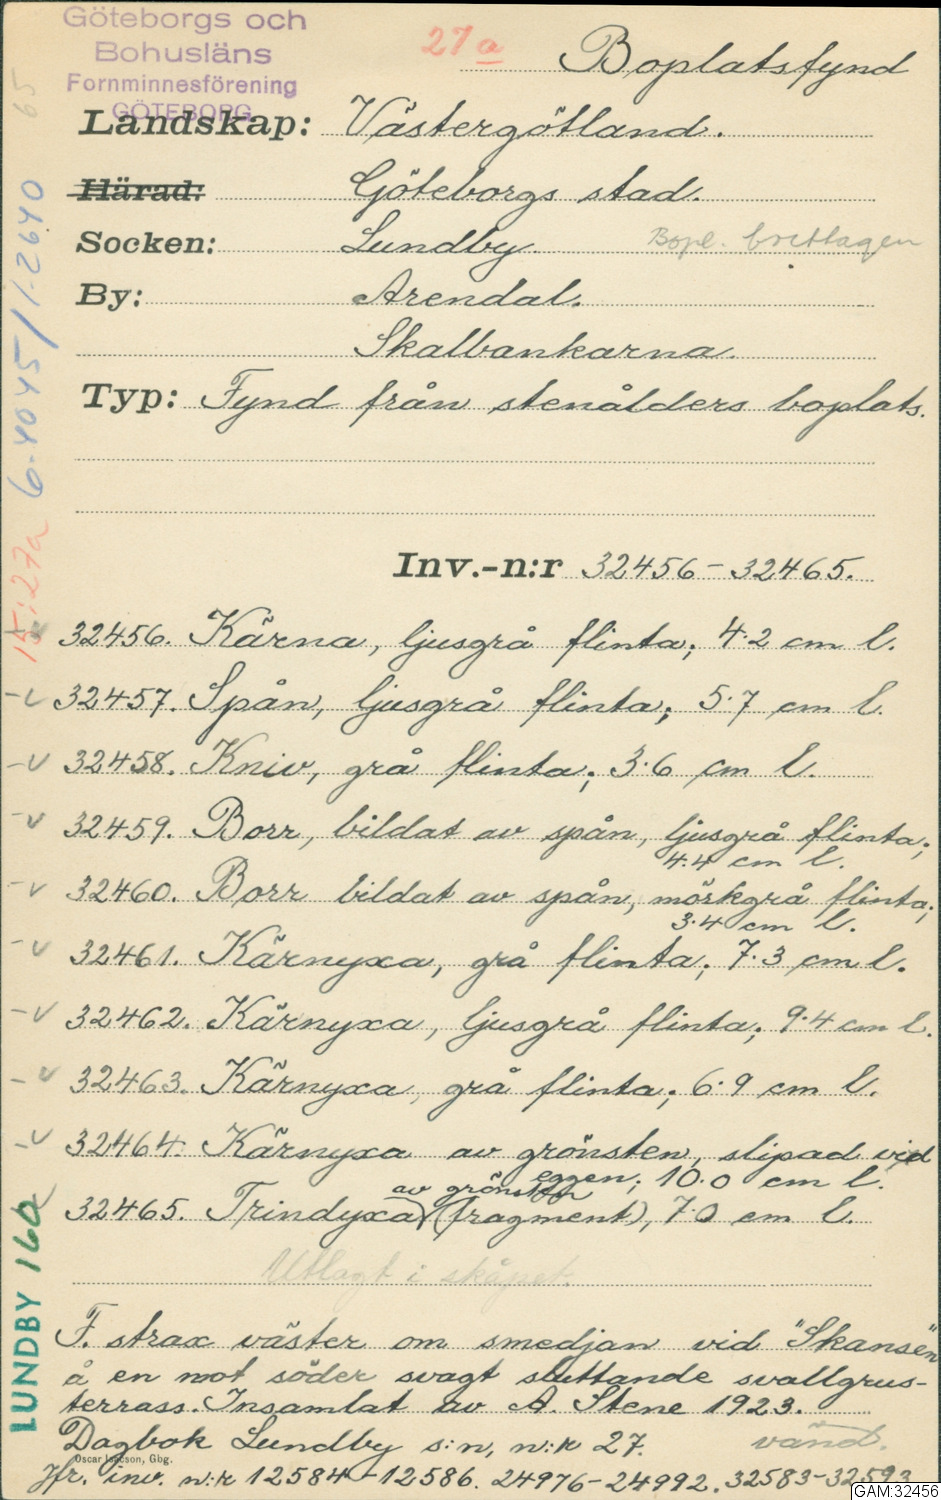 Göteborgs och
Bohusläns
Fornminnesförening
GÖTEBORG
27a
Boplatsfynd
Landskap: Västergötland.
Härad: Göteborgs stad.
Socken: Lundby. Bopl. borttagen
By: Arendal.
Skalbankarna.
Typ: Fynd från stenålders boplats.
Inv.-n:r 32456-32465.
32456. Kärna, ljusgrå flinta; 4.2 cm l.
-v 32457. Spån, ljusgrå flinta; 5.7 cm l.
-v 32458. Kniv, grå flinta; 3.6 cm l.
-v 32459. Borr, bildat av spån, ljusgrå flinta;
4.4 cm l.
-v 32460. Borr bildat av spån, mörkgrå flinta;
3.4 cm l.
-v 32461. Kärnyxa, grå flinta; 7.3 cm l.
-v 32462. Kärnyxa, ljusgrå flinta; 9.4 cm l.
-v 32463. Kärnyxa, grå flinta; 6.9 cm l.
-v 32464. Kärnyxa av grönsten, slipad vid
eggen; 10.0 cm l.
av grönsten
32465. Trindyxa (fragment), 7.0 cm l.
Utlagt i skåpet.
F. strax väster om smedjan vid "Skansen"
å en mot söder svagt sluttande svallgrus-
terrass. Insamlat av A. Stene 1923.
Dagbok Lundby s:n, n:r 27. vänd.
Oscar Isacson, Gbg.
Jfr. inv. n:r 12584-12586. 24976-24992. 32583-32593
LUNDBY 160
15:27a 6-4045/1-2640 65
GAM:32456